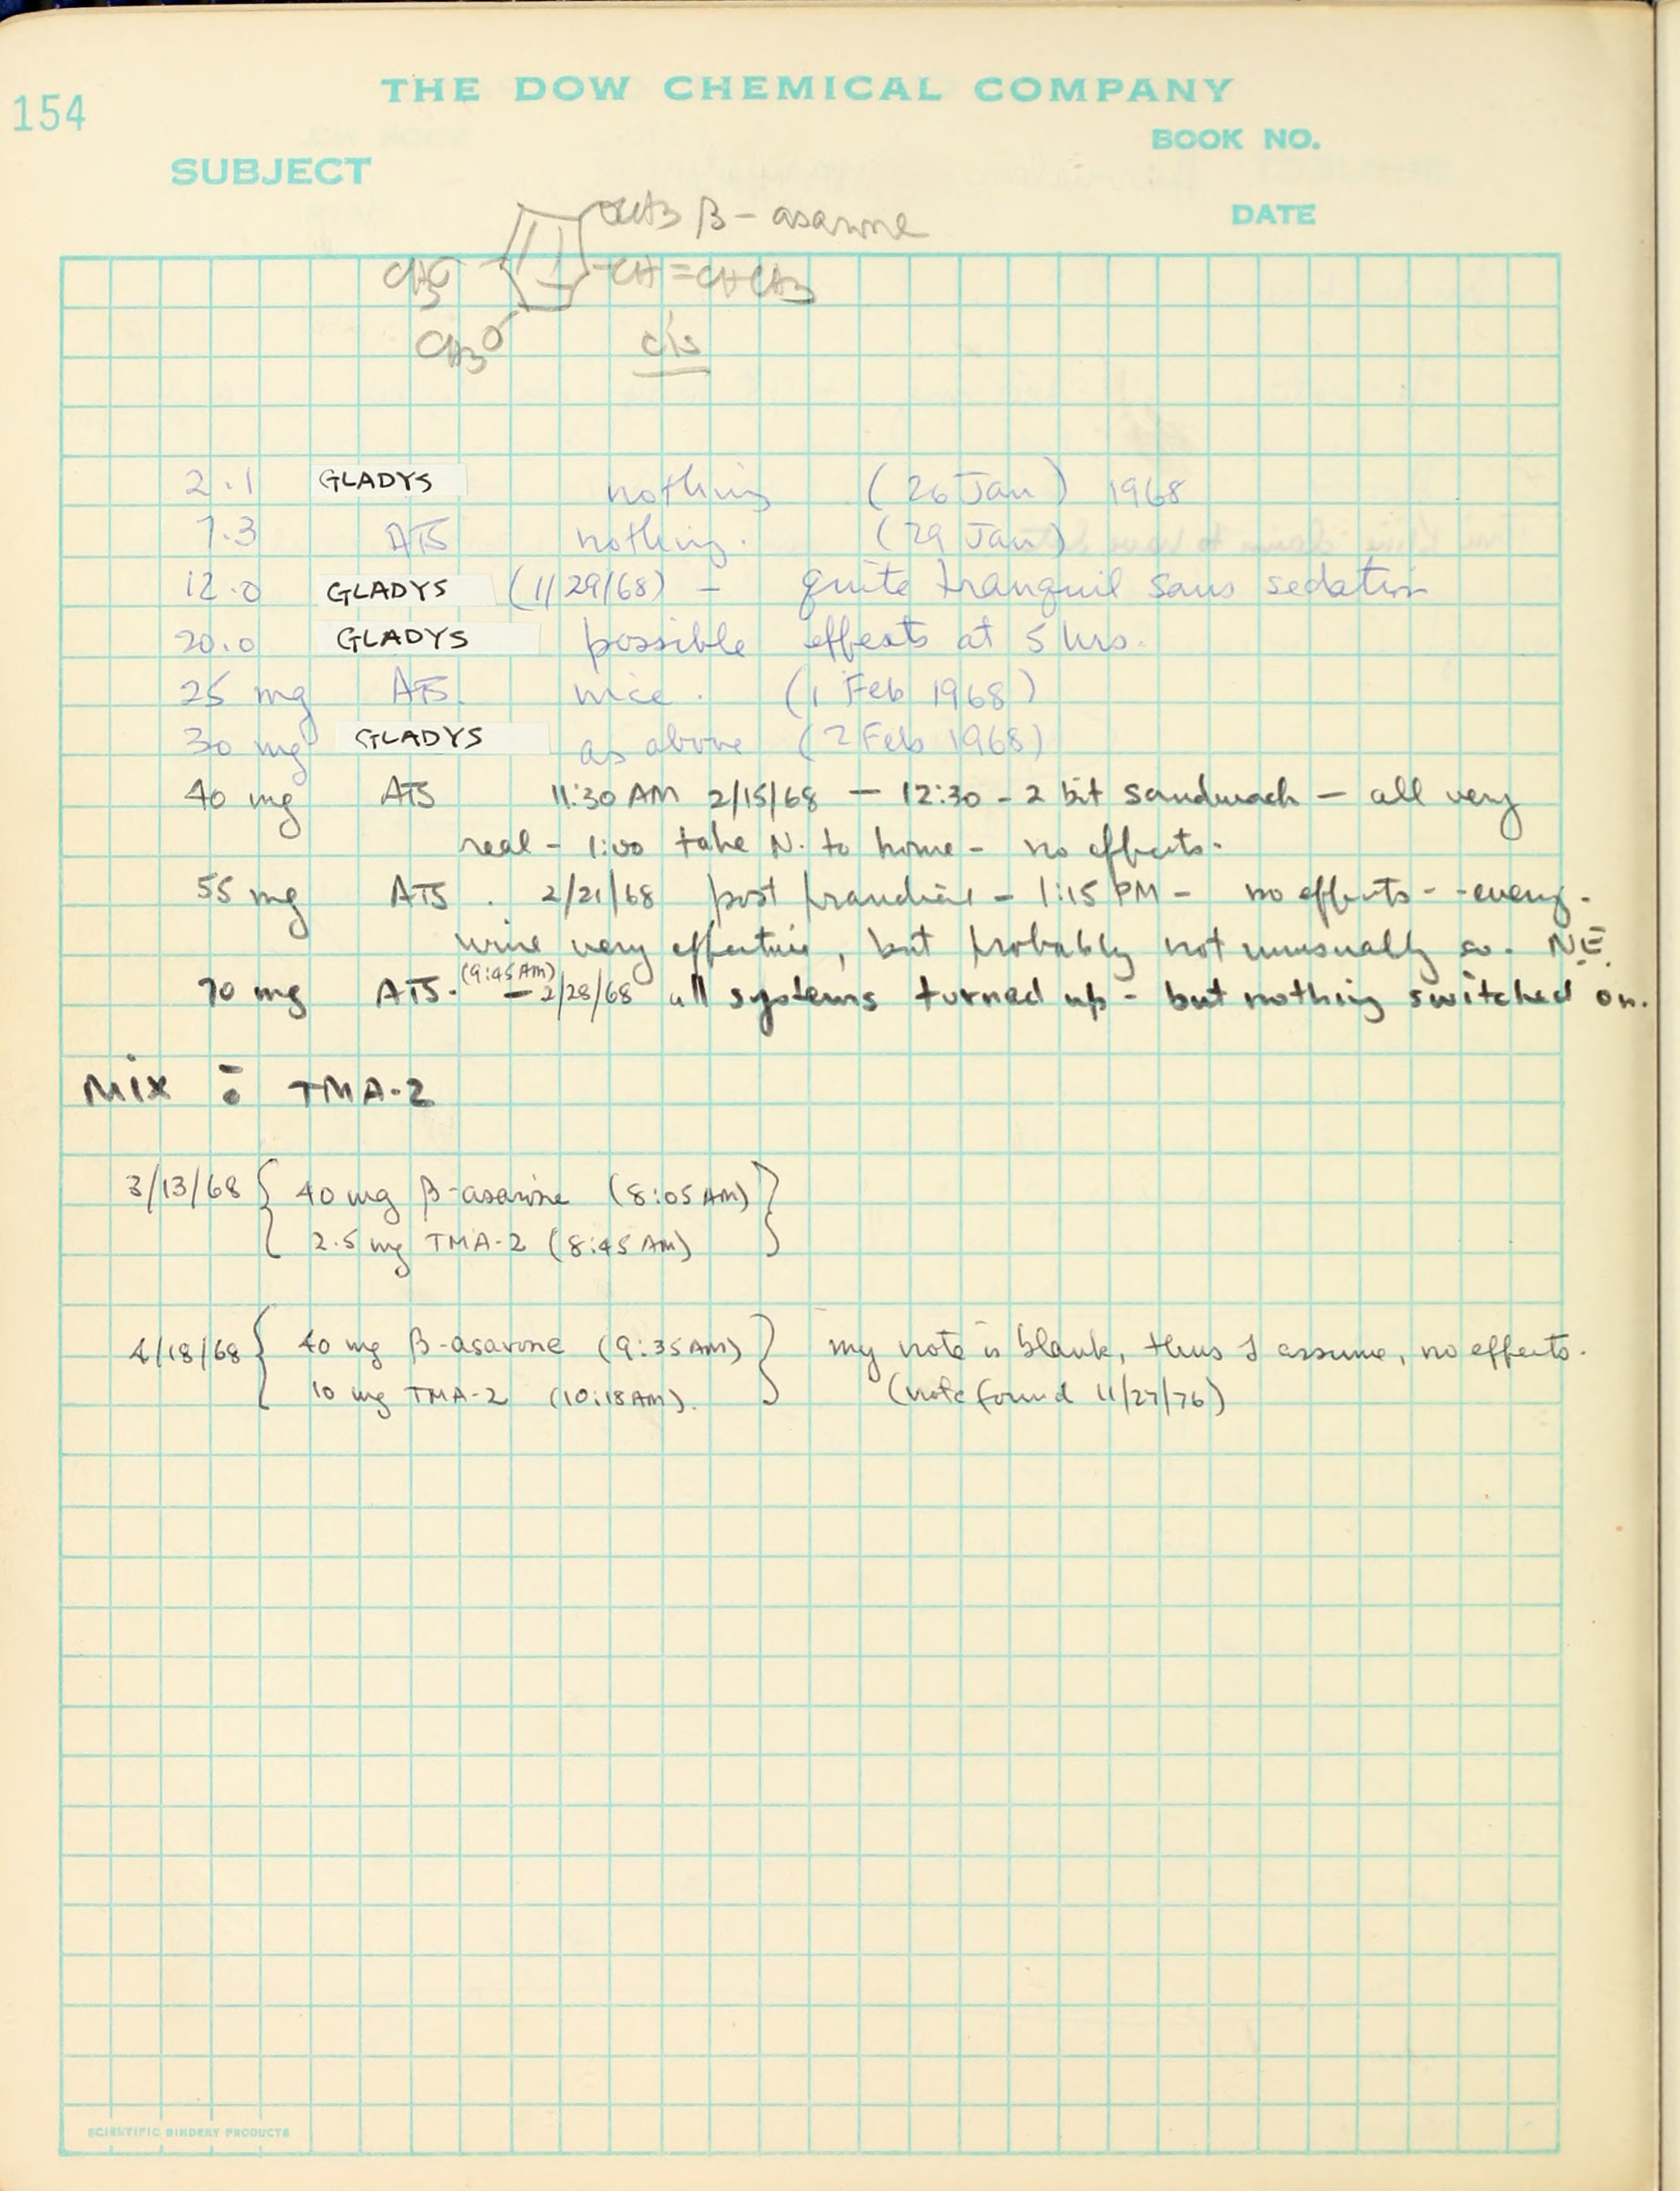 THE DOW CHEMICAL COMPANY
154
BOOK NO.
SUBJECT
DATE
OCH3 β-asarone
CH3O -CH=CHCH3
CH3O cis
2.1 GLADYS nothing (26 Jan) 1968
7.3 ATS nothing. (29 Jan)
12.0 GLADYS (1/29/68) - quite tranquil sans sedation
20.0 GLADYS possible effects at 5 hrs.
25 mg ATS. nice. (1 Feb 1968)
30 mg GLADYS as above (2 Feb 1968)
40 mg ATS 11:30 AM 2/15/68 — 12:30 - 2 bit sandwach — all very
real - 1:00 take N. to home - no effects.
55 mg ATS. 2/21/68 post prandial - 1:15 PM - no effects - - energ.
wise very effective, but probably not unusually so. N.E.
70 mg ATS. (9:45 AM) - 2/28/68 all systems turned up - but nothing switched on.
Mix : TMA-2
3/13/68 { 40 mg β-asarone (8:05 AM) }
2.5 mg TMA-2 (8:45 AM)
4/18/68 { 40 mg β-asarone (9:35 AM) } my note is blank, thus I assume, no effects.
10 mg TMA-2 (10:18 AM). (note found 11/27/76)
SCIENTIFIC BINDERY PRODUCTS